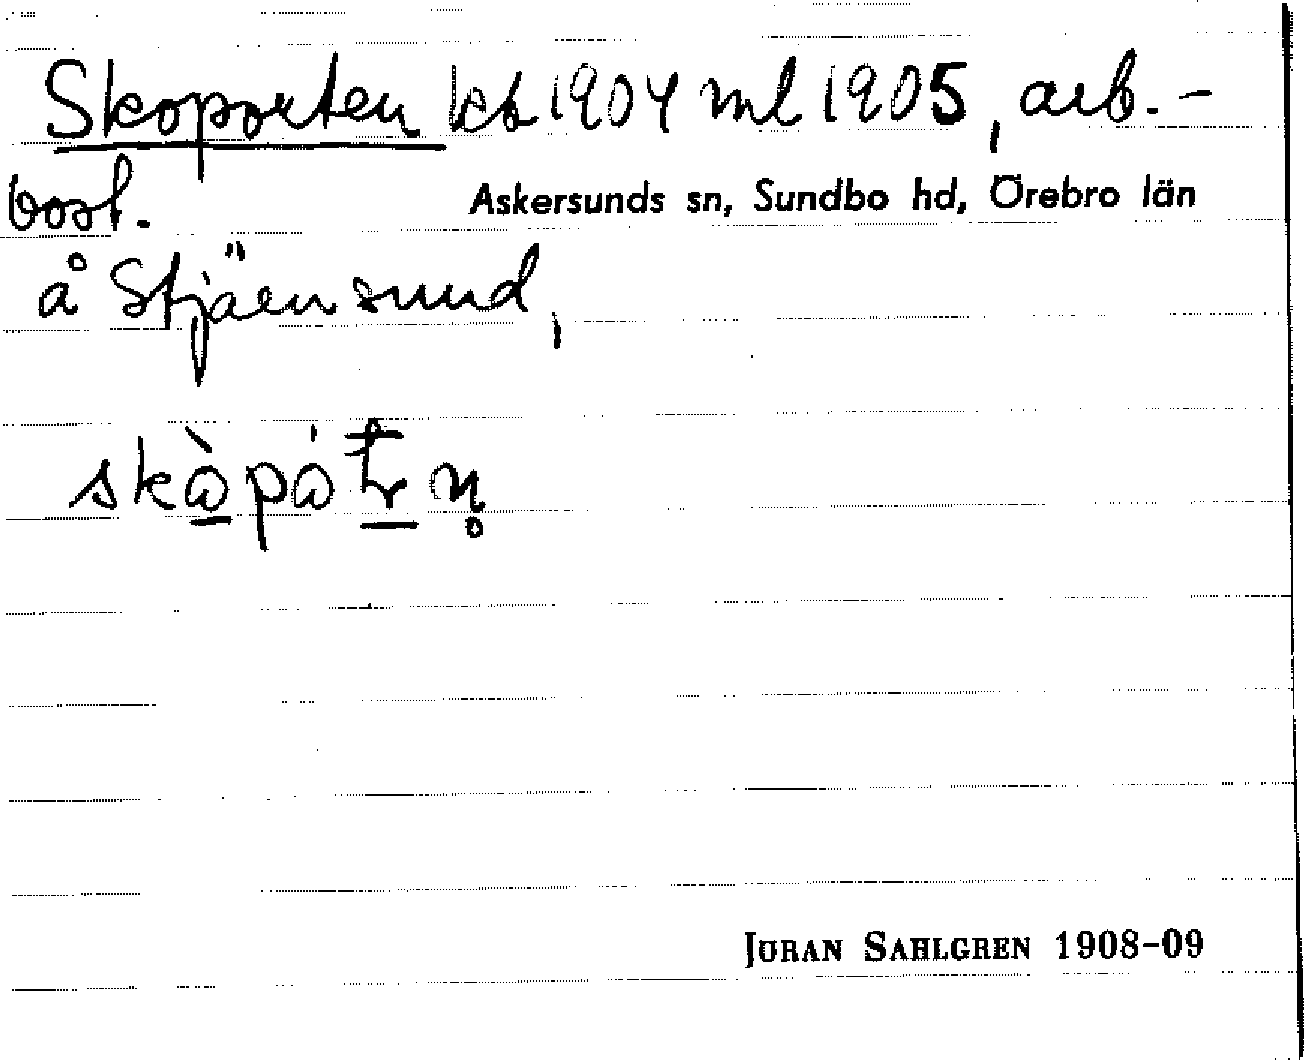 Skoporten kb 1904 ml 1905, arb.-
bost.
Askersunds sn, Sundbo hd, Örebro län
å Stjärnsund,
JÖRAN SAHLGREN 1908-09